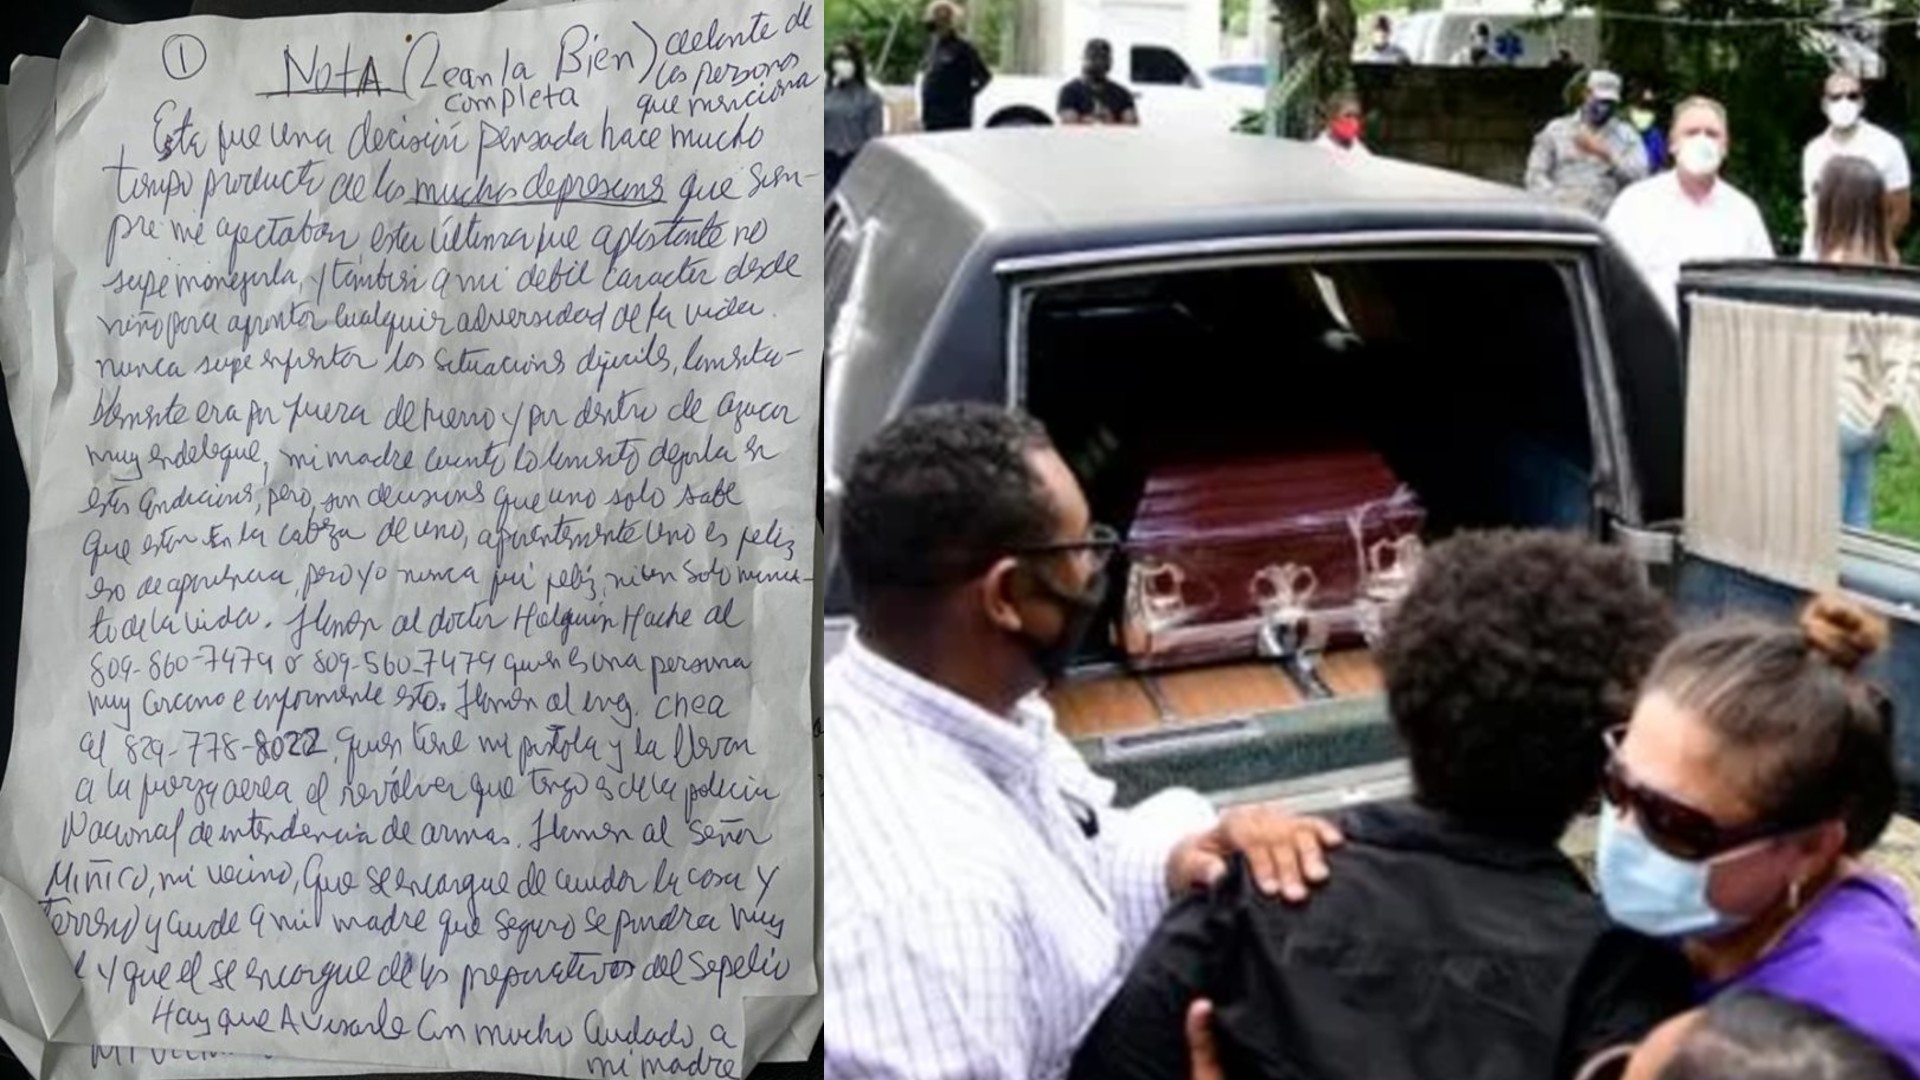 1
NOTA (Lean la Bien) delante de
completa las personas
que menciona
Esta fue una decisión pensada hace mucho
tiempo producto de las muchas depresions que siem-
pre me afectaban esta última fue aplastante no
supe manejarla, y también a mi debil caracter desde
niño para afrontar cualquier adversidad de la vida.
nunca supe enfrentar las situacions dificiles, lamenta-
blemente era por fuera de hierro y por dentro de azucar
muy endeleque, mi madre cuento lo lamento dejarla en
estas condicions, pero son decisions que uno solo sabe
que estan en la cabeza de uno, aparentemente uno es feliz
eso de apariencia, pero yo nunca fui feliz, ni un solo minu-
to de la vida. Llamen al doctor Holguin Hache al
809-860-7474 o 809-560-7474 quien es una persona
muy cercano e informenle esto. Llamen al eng. chea
al 829-778-8022 quien tiene mi pistola y la llevan
a la fuerza aerea el revólver que tengo es de la policia
Nacional de intendencia de armas. Llamen al Señor
Miñico, mi vecino, que se encargue de cuidar la casa y
terreno y cuide a mi madre que seguro se pondra muy
y que el se encargue de los preparativos del sepelio
Hay que Avisarle con mucho cuidado a
mi madre